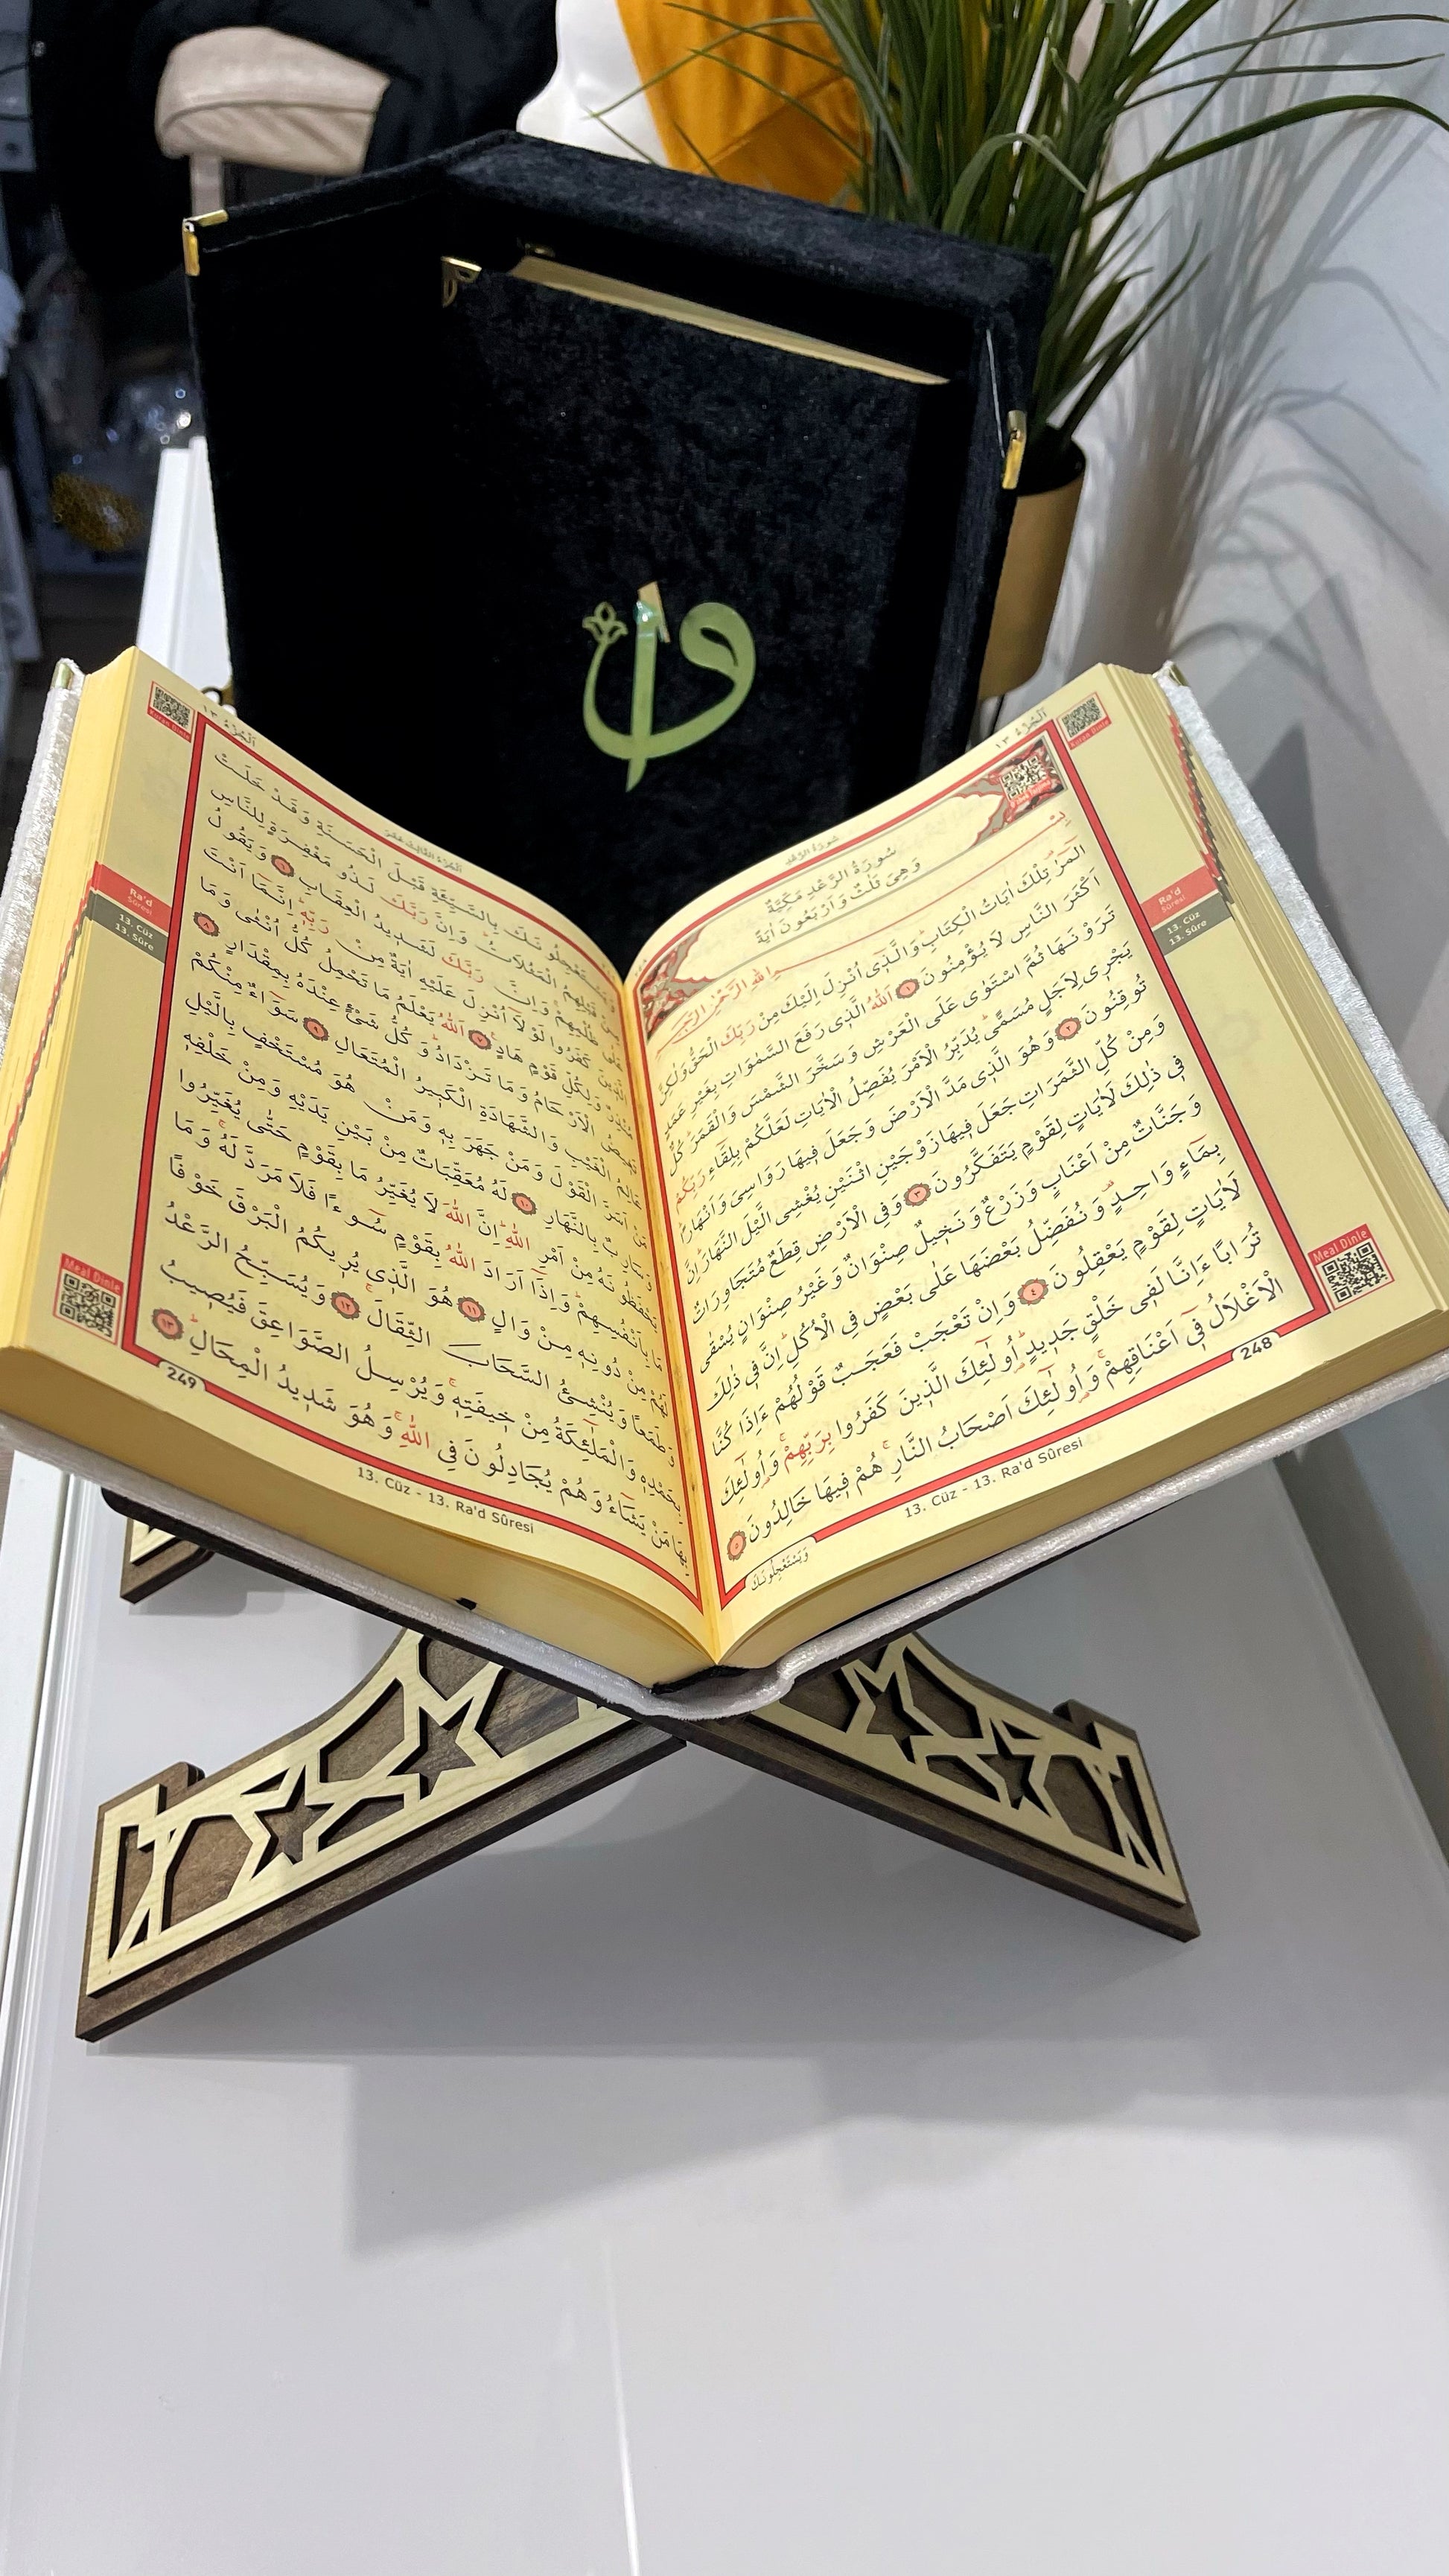 اَلْجُزْءُ ١٣
Kuran Dinle
سُورَةُ الرَّعْدِ
سُورَةُ الرَّعْدِ مَكِّيَّةٌ
وَهِيَ ثَلٰثٌ وَاَرْبَعُونَ اٰيَةً
بِسْـــمِ اللّٰهِ الرَّحْمٰنِ الرَّحِيمِ
الٓمٓرٰ تِلْكَ اٰيَاتُ الْكِتَابِ وَالَّذِى اُنْزِلَ اِلَيْكَ مِنْ رَبِّكَ الْحَقُّ وَلٰكِنَّ
اَكْثَرَ النَّاسِ لَا يُؤْمِنُونَ ١ اَللّٰهُ الَّذِى رَفَعَ السَّمٰوَاتِ بِغَيْرِ عَمَدٍ
تَرَوْنَهَا ثُمَّ اسْتَوٰى عَلَى الْعَرْشِ وَسَخَّرَ الشَّمْسَ وَالْقَمَرَ كُلٌّ
يَجْرِى لِاَجَلٍ مُسَمًّى يُدَبِّرُ الْاَمْرَ يُفَصِّلُ الْاٰيَاتِ لَعَلَّكُمْ بِلِقَاءِ رَبِّكُمْ
تُوقِنُونَ ٢ وَهُوَ الَّذِى مَدَّ الْاَرْضَ وَجَعَلَ فِيهَا رَوَاسِىَ وَاَنْهَارًا
وَمِنْ كُلِّ الثَّمَرَاتِ جَعَلَ فِيهَا زَوْجَيْنِ اثْنَيْنِ يُغْشِى الَّيْلَ النَّهَارَ اِنَّ
فِى ذٰلِكَ لَاٰيَاتٍ لِقَوْمٍ يَتَفَكَّرُونَ ٣ وَفِى الْاَرْضِ قِطَعٌ مُتَجَاوِرَاتٌ
وَجَنَّاتٌ مِنْ اَعْنَابٍ وَزَرْعٌ وَنَخِيلٌ صِنْوَانٌ وَغَيْرُ صِنْوَانٍ يُسْقٰى
بِمَاءٍ وَاحِدٍ وَنُفَضِّلُ بَعْضَهَا عَلٰى بَعْضٍ فِى الْاُكُلِ اِنَّ فِى ذٰلِكَ
لَاٰيَاتٍ لِقَوْمٍ يَعْقِلُونَ ٤ وَاِنْ تَعْجَبْ فَعَجَبٌ قَوْلُهُمْ ءَاِذَا كُنَّا
تُرَابًا ءَاِنَّا لَفِى خَلْقٍ جَدِيدٍ اُولٰئِكَ الَّذِينَ كَفَرُوا بِرَبِّهِمْ وَاُولٰئِكَ
الْاَغْلَالُ فِى اَعْنَاقِهِمْ وَاُولٰئِكَ اَصْحَابُ النَّارِ هُمْ فِيهَا خَالِدُونَ ٥
وَيَسْتَعْجِلُونَكَ
Ra'd
Sûresi
13. Cüz
13. Sûre
Meal Dinle
248
13. Cüz - 13. Ra'd Sûresi
اَلْجُزْءُ ١٣
Kuran Dinle
اَلْجُزْءُ الثَّالِثَ عَشَرَ
بِالسَّيِّئَةِ قَبْلَ الْحَسَنَةِ وَقَدْ خَلَتْ
الْمَثُلَاتُ وَاِنَّ رَبَّكَ لَذُو مَغْفِرَةٍ لِلنَّاسِ
وَاِنَّ رَبَّكَ لَشَدِيدُ الْعِقَابِ ٦ وَيَقُولُ
كَفَرُوا لَوْلَا اُنْزِلَ عَلَيْهِ اٰيَةٌ مِنْ رَبِّهِ اِنَّمَا اَنْتَ
وَلِكُلِّ قَوْمٍ هَادٍ ٧ اَللّٰهُ يَعْلَمُ مَا تَحْمِلُ كُلُّ اُنْثٰى وَمَا
الْاَرْحَامُ وَمَا تَزْدَادُ وَكُلُّ شَىْءٍ عِنْدَهُ بِمِقْدَارٍ ٨
الْغَيْبِ وَالشَّهَادَةِ الْكَبِيرُ الْمُتَعَالِ ٩ سَوَاءٌ مِنْكُمْ
الْقَوْلَ وَمَنْ جَهَرَ بِهِ وَمَنْ هُوَ مُسْتَخْفٍ بِالَّيْلِ
بِالنَّهَارِ ١٠ لَهُ مُعَقِّبَاتٌ مِنْ بَيْنِ يَدَيْهِ وَمِنْ خَلْفِهِ
مِنْ اَمْرِ اللّٰهِ اِنَّ اللّٰهَ لَا يُغَيِّرُ مَا بِقَوْمٍ حَتّٰى يُغَيِّرُوا
مَا بِاَنْفُسِهِمْ وَاِذَا اَرَادَ اللّٰهُ بِقَوْمٍ سُوءًا فَلَا مَرَدَّ لَهُ وَمَا
لَهُمْ مِنْ دُونِهِ مِنْ وَالٍ ١١ هُوَ الَّذِى يُرِيكُمُ الْبَرْقَ خَوْفًا
وَطَمَعًا وَيُنْشِئُ السَّحَابَ الثِّقَالَ ١٢ وَيُسَبِّحُ الرَّعْدُ
بِحَمْدِهِ وَالْمَلٰئِكَةُ مِنْ خِيفَتِهِ وَيُرْسِلُ الصَّوَاعِقَ فَيُصِيبُ
بِهَا مَنْ يَشَاءُ وَهُمْ يُجَادِلُونَ فِى اللّٰهِ وَهُوَ شَدِيدُ الْمِحَالِ ١٣
Ra'd
Sûresi
13. Cüz
13. Sûre
Meal Dinle
249
13. Cüz - 13. Ra'd Sûresi